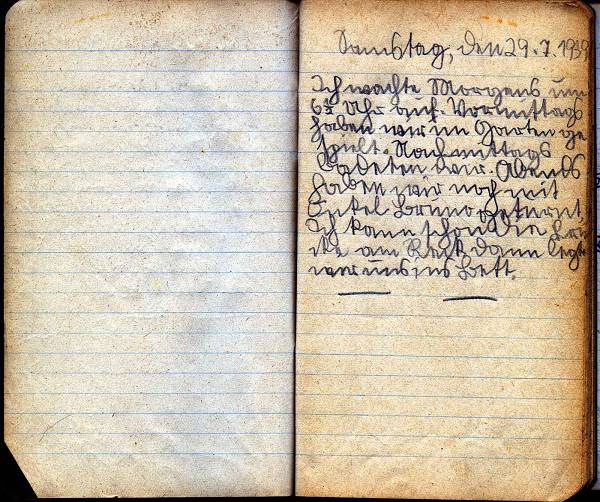 Samstag, den 29.7.1939
Ich wachte Morgens um
6½ Uhr auf. Vormittags
haben wir im Garten ge
spielt. Nachmittags
badeten wir. Abends
haben wir noch mit
Onkel Bruno geturnt
Ich kann schon die Brü
cke am Reck dann legte
wir uns ins Bett.